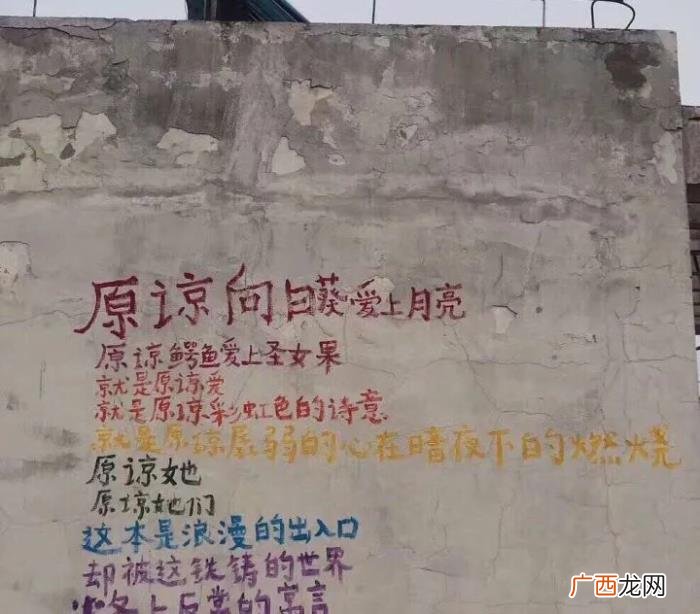 原谅向日葵爱上月亮
原谅鳄鱼爱上圣女果
就是原谅爱
就是原谅彩虹色的诗意
就是原谅孱弱的心在暗夜下的燃烧
原谅她
原谅她们
这本是浪漫的出入口
却被这铁铸的世界
烙上反常的寓言
广西龙网